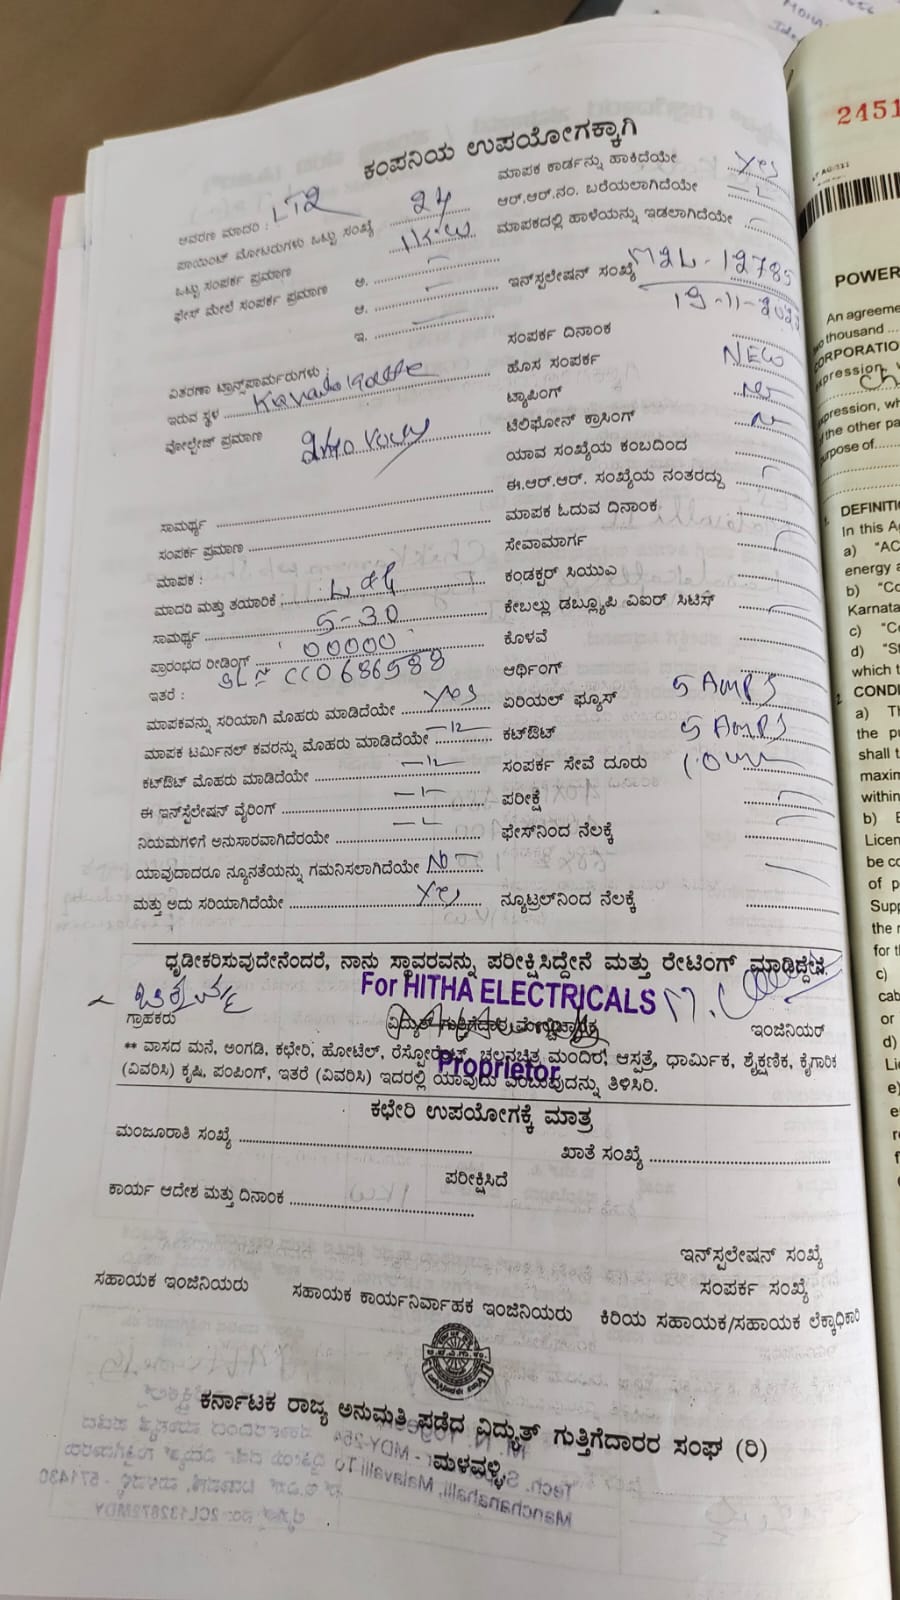 ಕಂಪನಿಯ ಉಪಯೋಗಕ್ಕಾಗಿ
ಆವರಣ ಮಾದರಿ : LT2
ಪಾಯಿಂಟ್ ಮೋಟರುಗಳು ಒಟ್ಟು ಸಂಖ್ಯೆ 24
ಒಟ್ಟು ಸಂಪರ್ಕ ಪ್ರಮಾಣ 1KW
ಫೇಸ್ ಮೇಲೆ ಸಂಪರ್ಕ ಪ್ರಮಾಣ ಅ.
ಆ.
ಇ.
ವಿತರಣಾ ಟ್ರಾನ್ಸ್‌ಫಾರ್ಮರುಗಳು
ಇರುವ ಸ್ಥಳ
ವೋಲ್ಟೇಜ್ ಪ್ರಮಾಣ 240
ಸಾಮರ್ಥ್ಯ
ಸಂಪರ್ಕ ಪ್ರಮಾಣ
ಮಾಪಕ :
ಮಾದರಿ ಮತ್ತು ತಯಾರಿಕೆ
ಸಾಮರ್ಥ್ಯ 5-30
ಪ್ರಾರಂಭದ ರೀಡಿಂಗ್ 00000
ಇತರೆ : SL No CC0686588
ಮಾಪಕವನ್ನು ಸರಿಯಾಗಿ ಮೊಹರು ಮಾಡಿದೆಯೇ Yes
ಮಾಪಕ ಟರ್ಮಿನಲ್ ಕವರನ್ನು ಮೊಹರು ಮಾಡಿದೆಯೇ
ಕಟ್‌ಔಟ್ ಮೊಹರು ಮಾಡಿದೆಯೇ
ಈ ಇನ್‌ಸ್ಟಲೇಷನ್ ವೈರಿಂಗ್
ನಿಯಮಗಳಿಗೆ ಅನುಸಾರವಾಗಿದೆರಯೇ
ಯಾವುದಾದರೂ ನ್ಯೂನತೆಯನ್ನು ಗಮನಿಸಲಾಗಿದೆಯೇ No
ಮತ್ತು ಅದು ಸರಿಯಾಗಿದೆಯೇ Yes
ಮಾಪಕ ಕಾರ್ಡನ್ನು ಹಾಕಿದೆಯೇ Yes
ಆರ್.ಆರ್.ನಂ. ಬರೆಯಲಾಗಿದೆಯೇ
ಮಾಪಕದಲ್ಲಿ ಹಾಳೆಯನ್ನು ಇಡಲಾಗಿದೆಯೇ
ಇನ್‌ಸ್ಟಲೇಷನ್ ಸಂಖ್ಯೆ M2L-12785
ಸಂಪರ್ಕ ದಿನಾಂಕ
ಹೊಸ ಸಂಪರ್ಕ NEW
ಟ್ಯಾಪಿಂಗ್
ಟೆಲಿಫೋನ್ ಕ್ರಾಸಿಂಗ್
ಯಾವ ಸಂಖ್ಯೆಯ ಕಂಬದಿಂದ
ಈ.ಆರ್.ಆರ್. ಸಂಖ್ಯೆಯ ನಂತರದ್ದು
ಮಾಪಕ ಓದುವ ದಿನಾಂಕ
ಸೇವಾಮಾರ್ಗ
ಕಂಡಕ್ಟರ್ ಸಿಯುವಿ
ಕೇಬಲ್ಲು ಡಬ್ಲ್ಯೂಪಿ ವಿಐರ್ ಸಿಟಿಸ್
ಕೊಳವೆ
ಆರ್ಥಿಂಗ್
ಏರಿಯಲ್ ಫ್ಯೂಸ್ 5 AMPS
ಕಟ್‌ಔಟ್ 5 AMPS
ಸಂಪರ್ಕ ಸೇವೆ ದೂರು
ಪರೀಕ್ಷೆ
ಫೇಸ್‌ನಿಂದ ನೆಲಕ್ಕೆ
ನ್ಯೂಟ್ರಲ್‌ನಿಂದ ನೆಲಕ್ಕೆ
ಧೃಡೀಕರಿಸುವುದೇನೆಂದರೆ, ನಾನು ಸ್ಥಾವರವನ್ನು ಪರೀಕ್ಷಿಸಿದ್ದೇನೆ ಮತ್ತು ರೇಟಿಂಗ್ ಮಾಡಿದ್ದೇನೆ.
For HITHA ELECTRICALS
ಗ್ರಾಹಕರು
ಇಂಜಿನಿಯರ್
** ವಾಸದ ಮನೆ, ಅಂಗಡಿ, ಕಛೇರಿ, ಹೋಟೆಲ್, ರೆಸ್ಟೋರೆಂಟ್, ಚಲನಚಿತ್ರ ಮಂದಿರ, ಆಸ್ಪತ್ರೆ, ಧಾರ್ಮಿಕ, ಶೈಕ್ಷಣಿಕ, ಕೈಗಾರಿಕ
(ವಿವರಿಸಿ) ಕೃಷಿ, ಪಂಪಿಂಗ್, ಇತರೆ (ವಿವರಿಸಿ) ಇದರಲ್ಲಿ ಯಾವುದು ಎಂಬುವುದನ್ನು ತಿಳಿಸಿರಿ.
Proprietor
ಕಛೇರಿ ಉಪಯೋಗಕ್ಕೆ ಮಾತ್ರ
ಮಂಜೂರಾತಿ ಸಂಖ್ಯೆ
ಖಾತೆ ಸಂಖ್ಯೆ
ಪರೀಕ್ಷಿಸಿದೆ
ಕಾರ್ಯ ಆದೇಶ ಮತ್ತು ದಿನಾಂಕ
ಇನ್‌ಸ್ಟಲೇಷನ್ ಸಂಖ್ಯೆ
ಸಂಪರ್ಕ ಸಂಖ್ಯೆ
ಸಹಾಯಕ ಇಂಜಿನಿಯರು
ಸಹಾಯಕ ಕಾರ್ಯನಿರ್ವಾಹಕ ಇಂಜಿನಿಯರು
ಕಿರಿಯ ಸಹಾಯಕ/ಸಹಾಯಕ ಲೆಕ್ಕಾಧಿಕಾರಿ
ಕರ್ನಾಟಕ ರಾಜ್ಯ ಅನುಮತಿ ಪಡೆದ ವಿದ್ಯುತ್ ಗುತ್ತಿಗೆದಾರರ ಸಂಘ (ರಿ)
ಮಳವಳ್ಳಿ
2451
POWER
An agreeme
thousand ...
CORPORATIO
expression
of the other pa
DEFINITI
In this A
a) "AC
energy a
b) "Co
Karnata
c) "Co
d) "St
which t
CONDI
a) Th
the pu
shall t
maxim
within
b) E
Licen
be co
of p
Supp
the r
for th
c)
cab
or
d)
Lic
e)